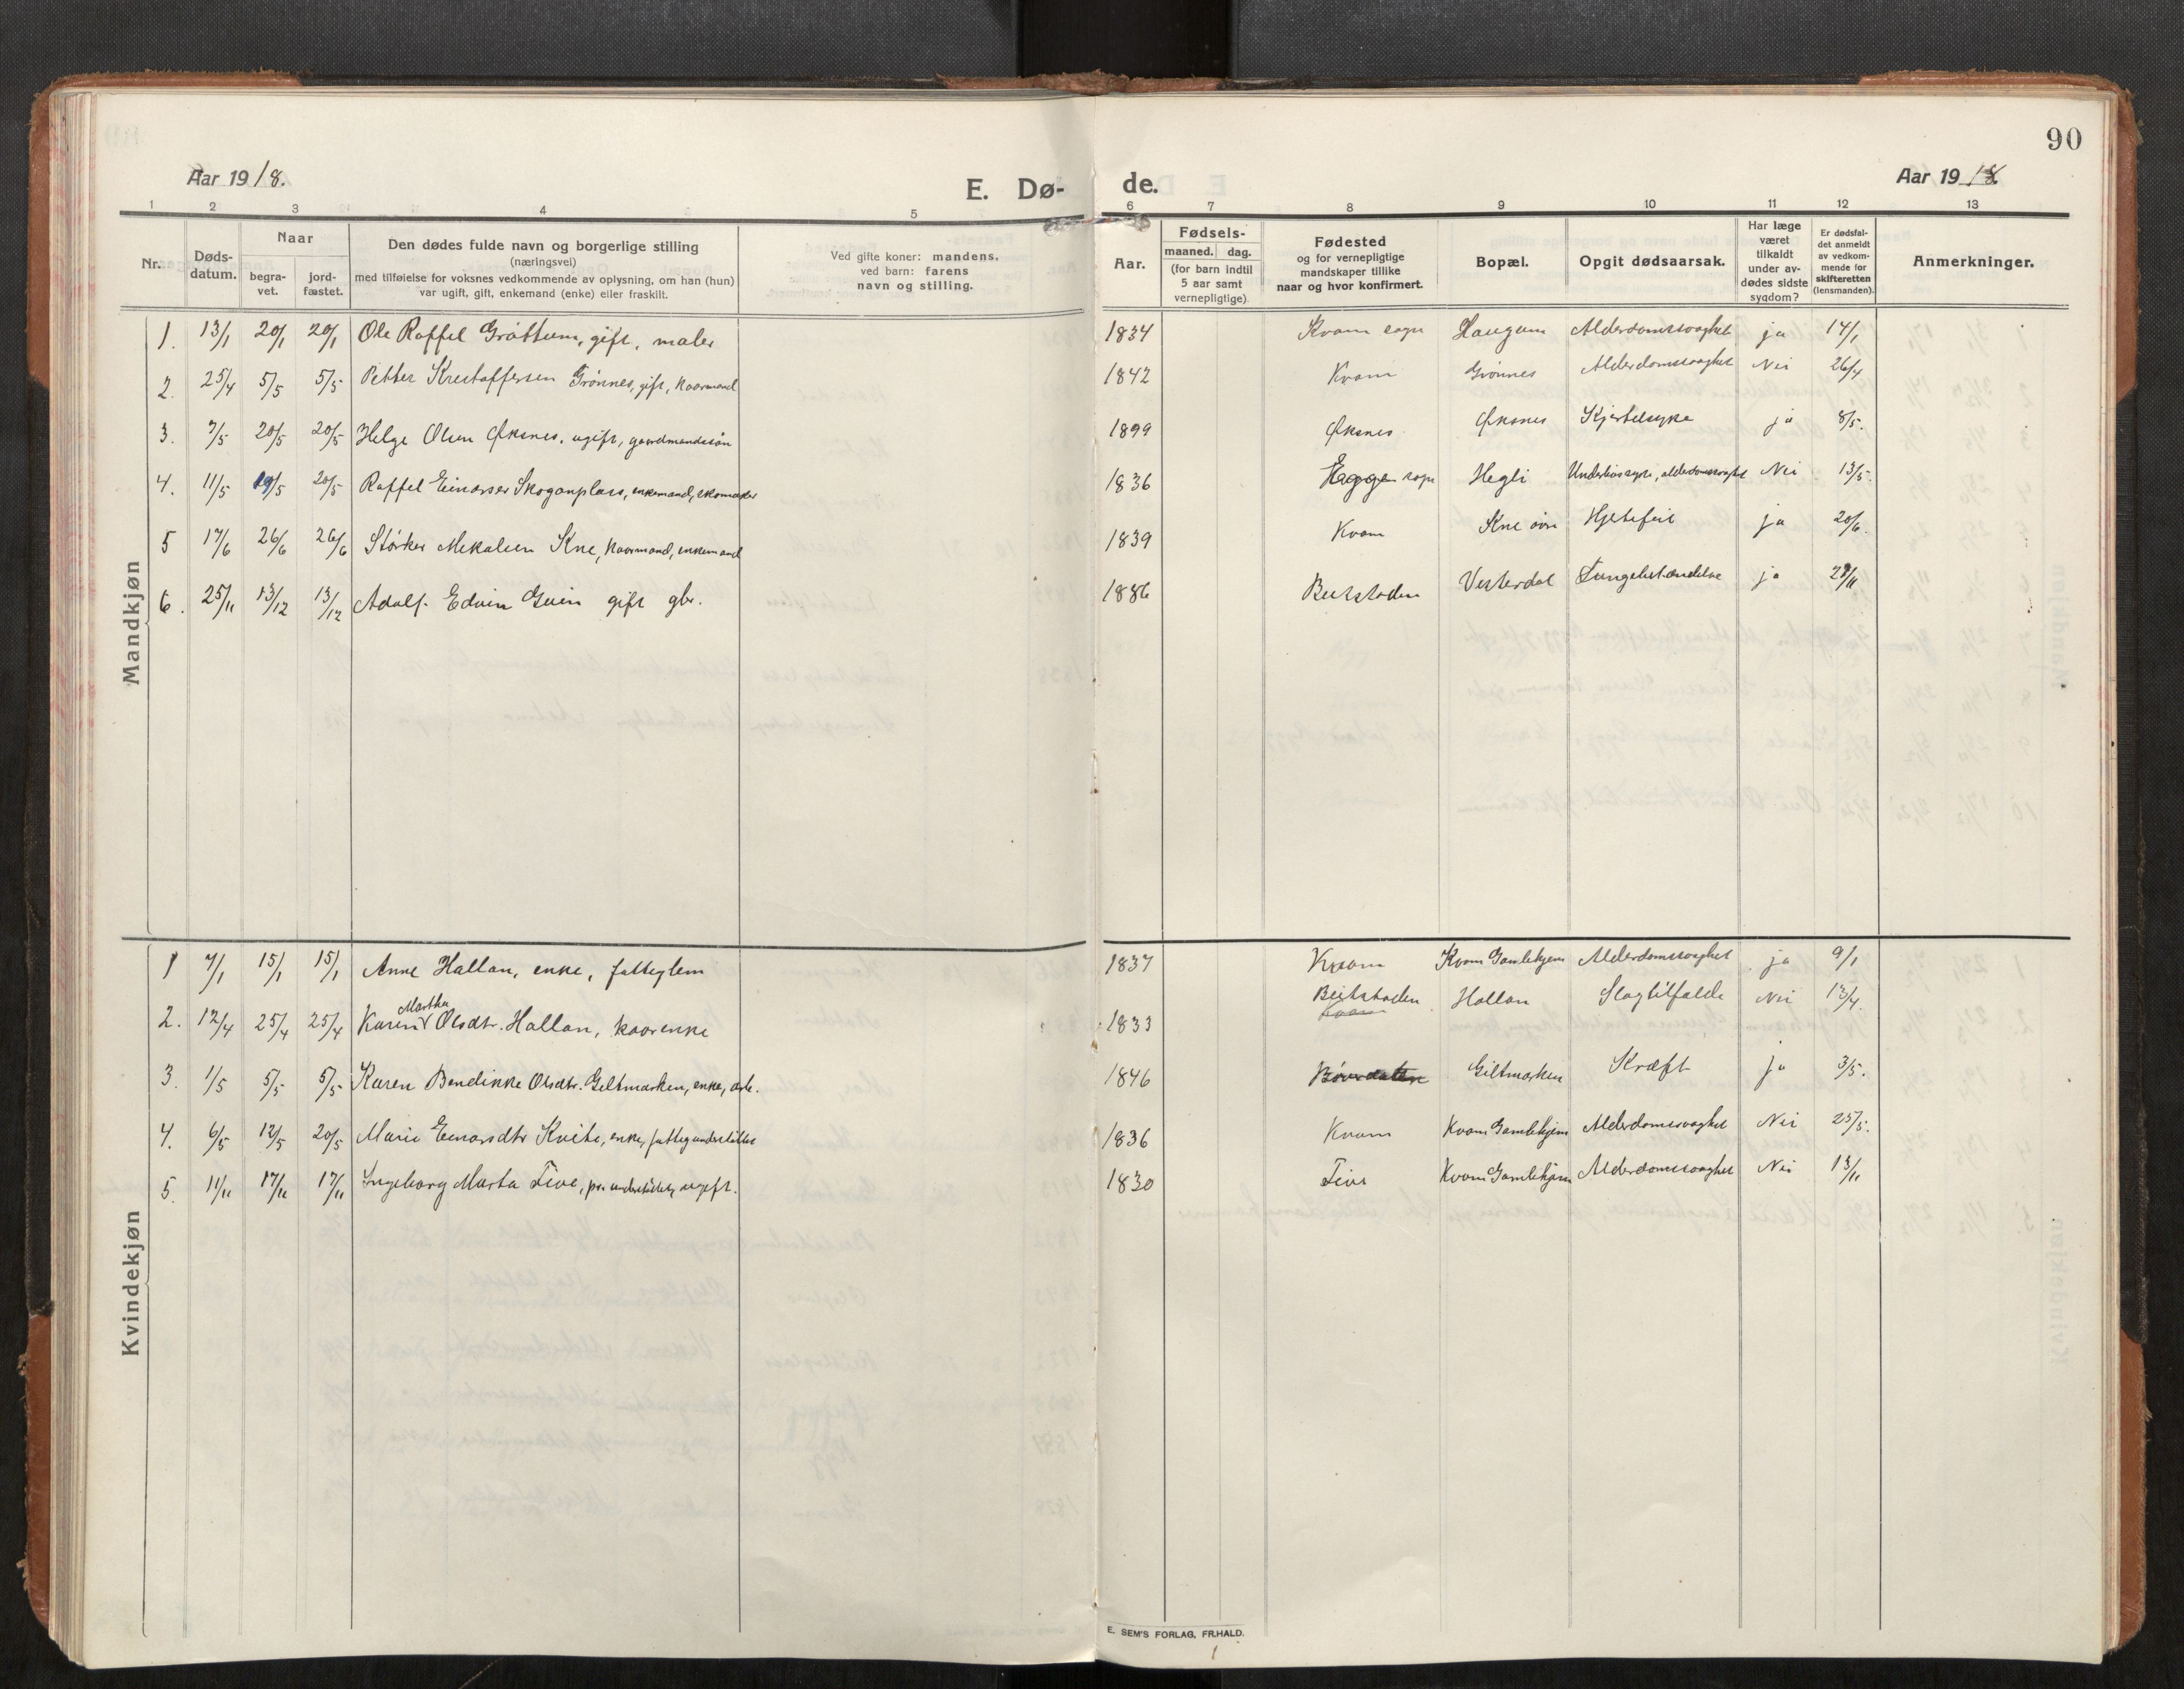 90
Aar 1918. E. Dø- de. Aar 1918.
1 2 3 4 5 6 7 8 9 10 11 12 13
Nr. Døds-datum. Naar begra-vet. jord-fæstet. Den dødes fulde navn og borgerlige stilling (næringsvei) med tilføielse for voksnes vedkommende av oplysning, om han (hun) var ugift, gift, enkemand (enke) eller fraskilt. Ved gifte koner: mandens, ved barn: farens navn og stilling. Aar. Fødsels- maaned. dag. (for barn indtil 5 aar samt vernepligtige). Fødested og for vernepligtige mandskaper tillike naar og hvor konfirmert. Bopæl. Opgit dødsaarsak. Har læge været tilkaldt under av-dødes sidste sygdom? Er dødsfal-det anmeldt av vedkom-mende for skifteretten (lensmanden). Anmerkninger.
Mandkjøn
1. 13/1 20/1 20/1 Ole Raffel Gråttum, gift, maler 1834 Kvam sogn Haugum Alderdomssvaghet ja 14/1
2. 25/4 5/5 5/5 Petter Krestoffersen Grønnes, gift, kaarmand 1842 Kvam Grønnes Alderdomssvaghet Nei 26/4
3. 7/5 20/5 20/5 Helge Olsen Øksnes, ugift, gaardmandssøn 1899 Øksnes Øksnes Kjertelsyke ja 8/5.
4. 11/5 19/5 20/5 Raffel Einarsen Skoganplass, enkemand, skomaker 1836 Egge sogn Hegli alderdomssvaghet Nei 13/5.
5 17/6 26/6 26/6 Størker Mikalsen Kne, kaarmand, enkemand 1839 Kvam Kne øvre Hjertefeil ja 20/6.
6. 25/11 13/12 13/12 Adolf Edvin Gvin gift gbr. 1886 Beitstaden Vesterdal Lungebetændelse ja 29/11
Kvindekjøn
1 7/1 15/1 15/1 Anne Hallan, enke, fattiglem 1837 Kvam Kvam Gamlehjem Alderdomssvaghet ja 9/1
2. 12/4 25/4 25/4 Karen Martha Olsdtr. Hallan, kaarenke 1833 Beitstaden Kvam Hallan Slagtilfælde Nei 13/4.
3. 1/5 5/5 5/5 Karen Bendikke Olsdtr. Giltmarken, enke, arb. 1846 Giltmarken Kræft ja 3/5.
4. 6/5 12/5 20/5 Marie Einarsdtr Kvite, enke, fattigunderstøttet 1836 Kvam Kvam Gamlehjem Alderdomssvaghet Nei 25/5.
5. 11/11 17/11 17/11 Ingeborg Marta Five, ugift. 1830 Five Kvam Gamlehjem Alderdomssvaghet Nei 13/11
E. SEM'S FORLAG, FR.HALD.